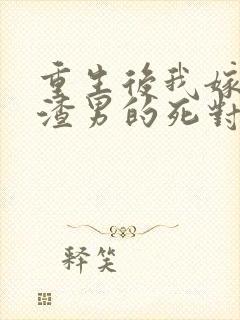 重生後我嫁
渣男的死對
释笑